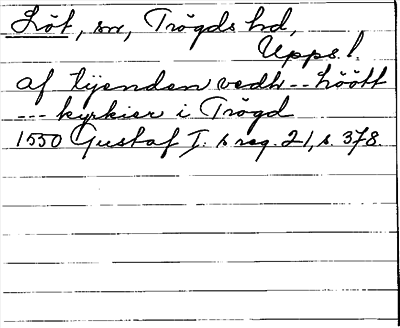 Löt, sn, Trögds hd,
Upps. l.
af tijenden vedh -- Löött
--- kyrkier i Trögd
1550 Gustaf I. s reg. 21, s. 378.